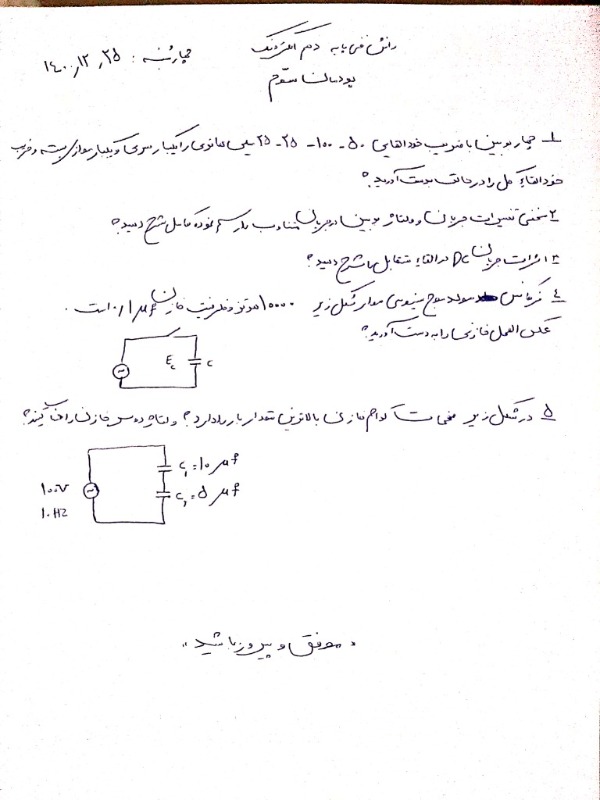 دانش فنی پایه دهم الکترونیک
چهارشنبه : ۱۴۰۰,۱۲,۲۵
پودمان سوم
۱ـ چهار بوبین با ضریب خودالقایی ۵۰ - ۱۰۰ - ۲۵ - ۲۵ میلی هانری را یکبار سری و یکبار موازی بسته و ضریب
خودالقاء کل را در حالت بدست آورید؟
۲ـ منحنی تغییرات جریان و ولتاژ بوبین در جریان متناوب را رسم نموده کامل شرح دهید؟
۳ـ اثرات جریان DC در القاء متقابل را شرح دهید؟
۴ـ فرکانس مولد موج سینوسی مدار شکل زیر ۱۰۰۰۰ هرتز و ظرفیت خازن ۰/۱ μf است.
عکس العمل خازنی را به دست آورید؟
E_c
c
۵ـ در شکل زیر صفحات کدام خازن بالاترین مقدار بار را دارد؟ ولتاژ دو سر خازن را
c₁=۱۰ μf
c₁=۵ μf
۱۰۰V
۱۰HZ
"موفق و پیروز باشید"